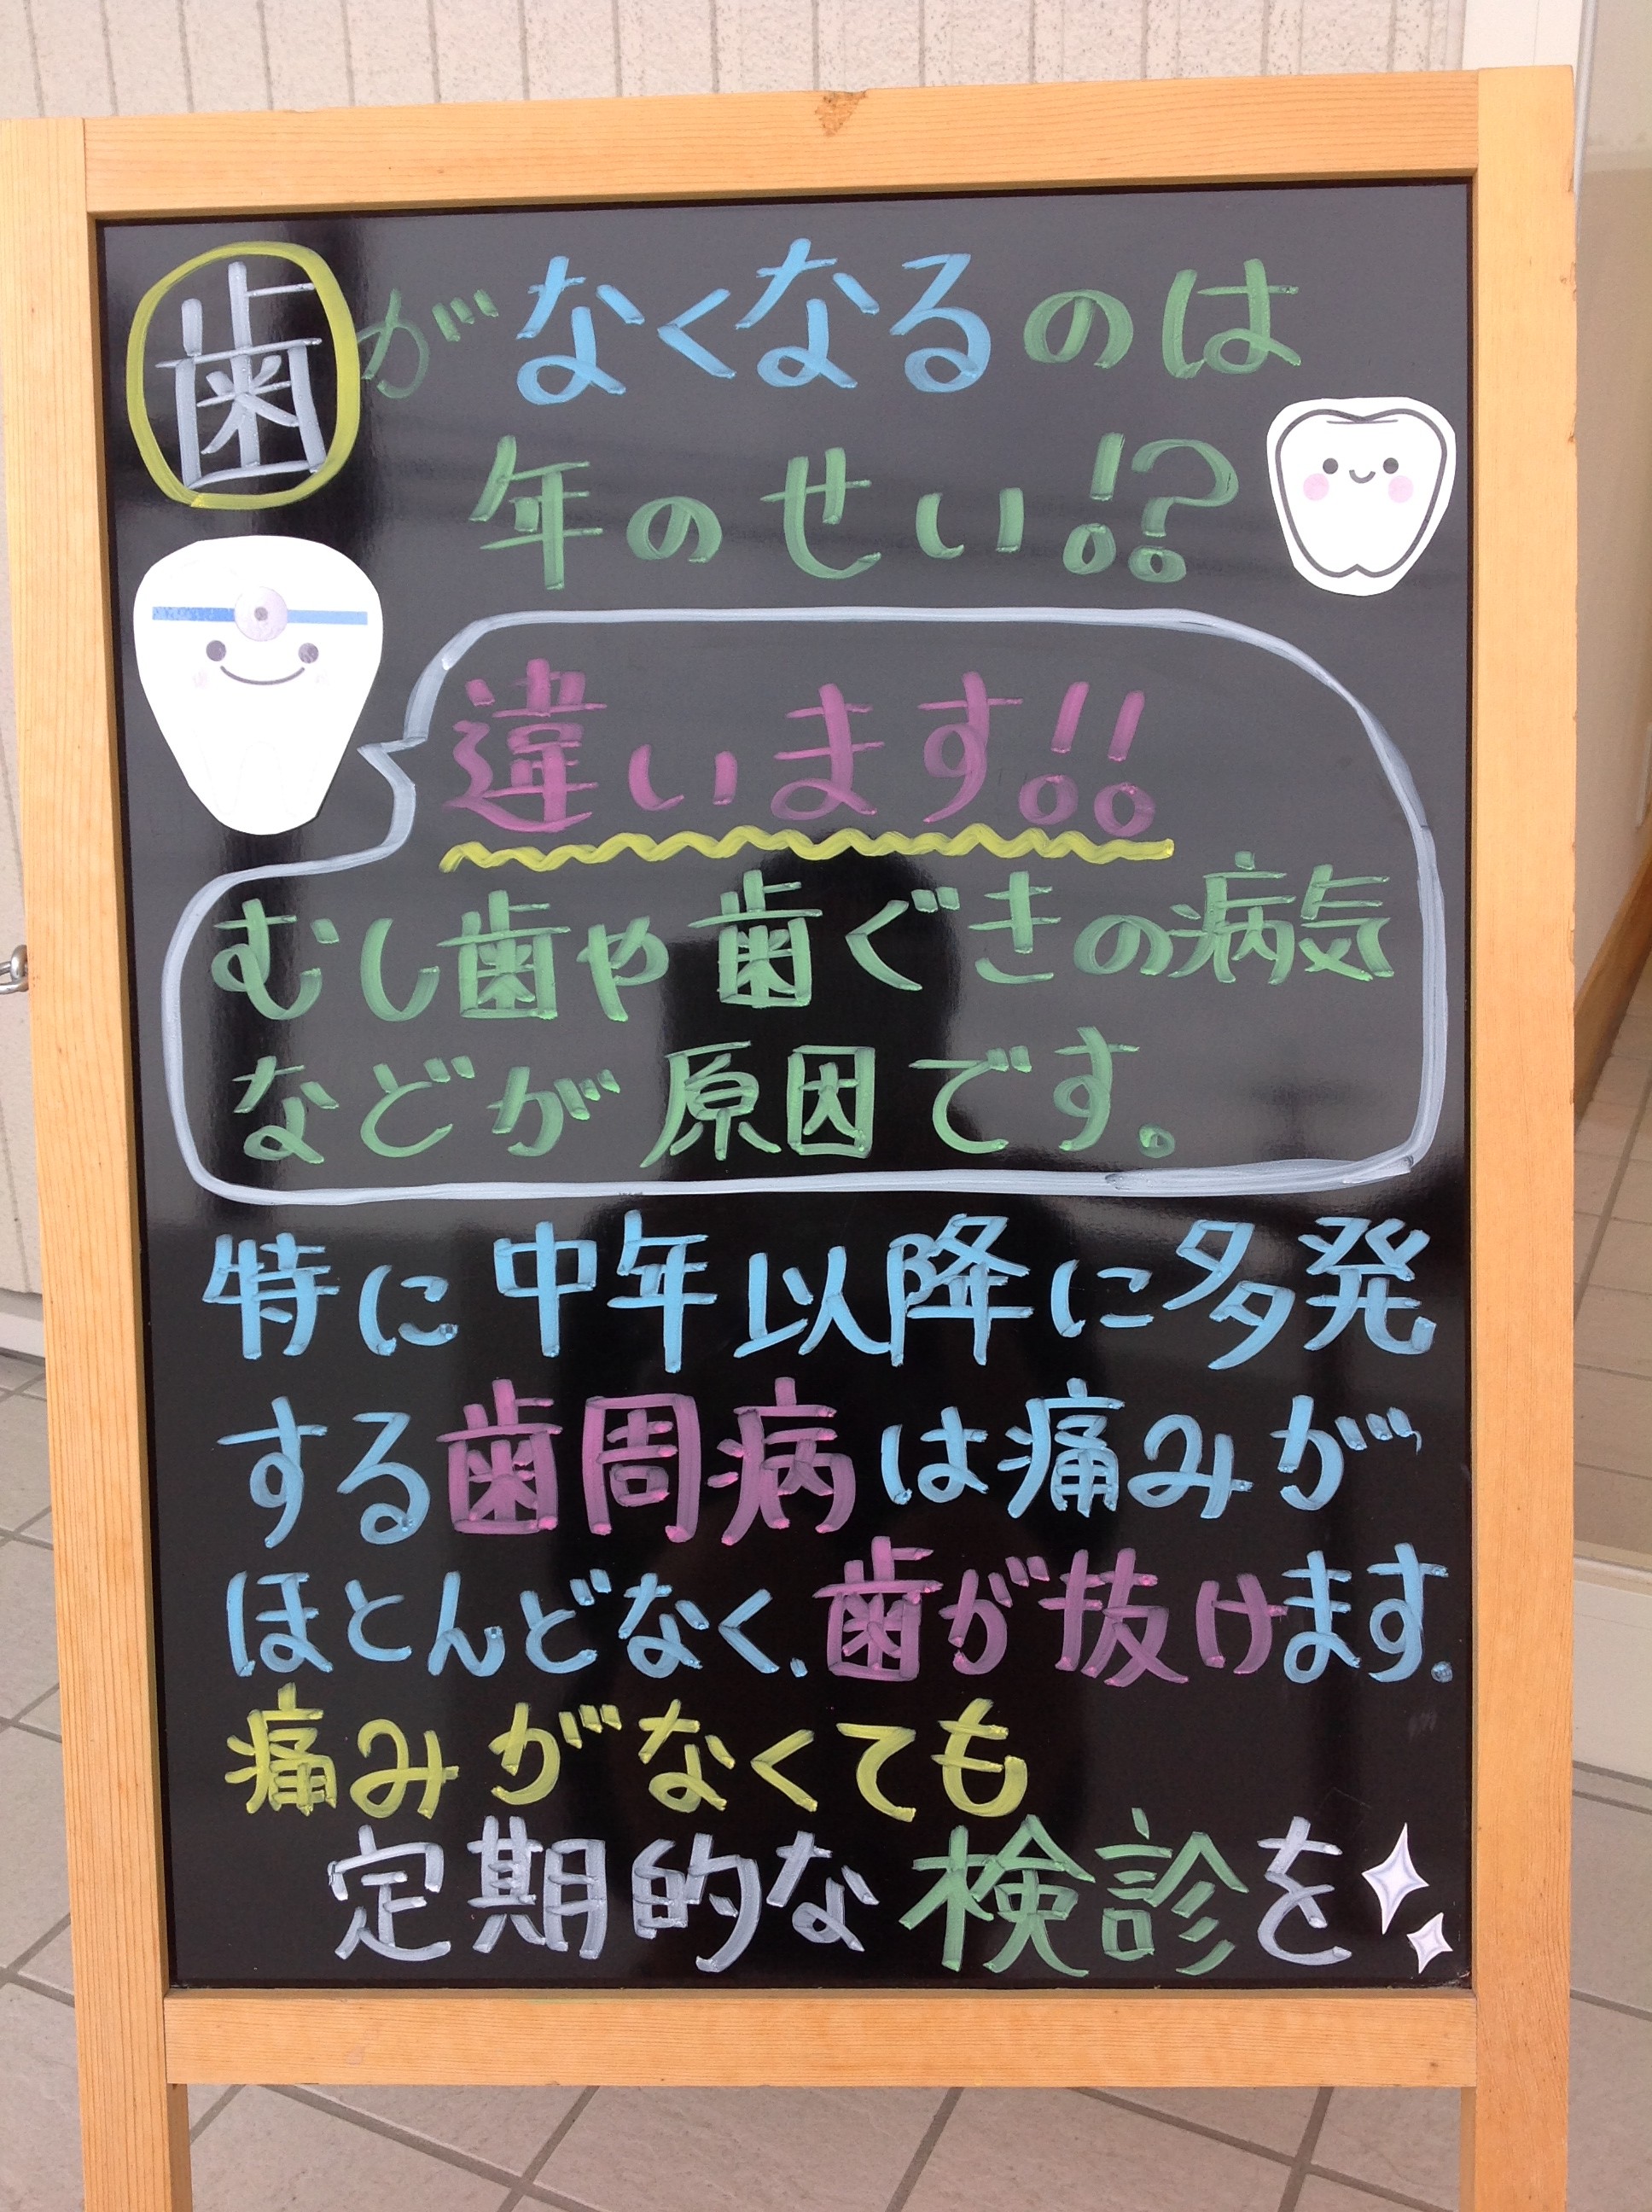 歯がなくなるのは
年のせい!?
違います!!
むし歯や歯ぐきの病気
などが原因です。
特に中年以降に多発
する歯周病は痛みが
ほとんどなく、歯が抜けます.
痛みがなくても
定期的な検診を